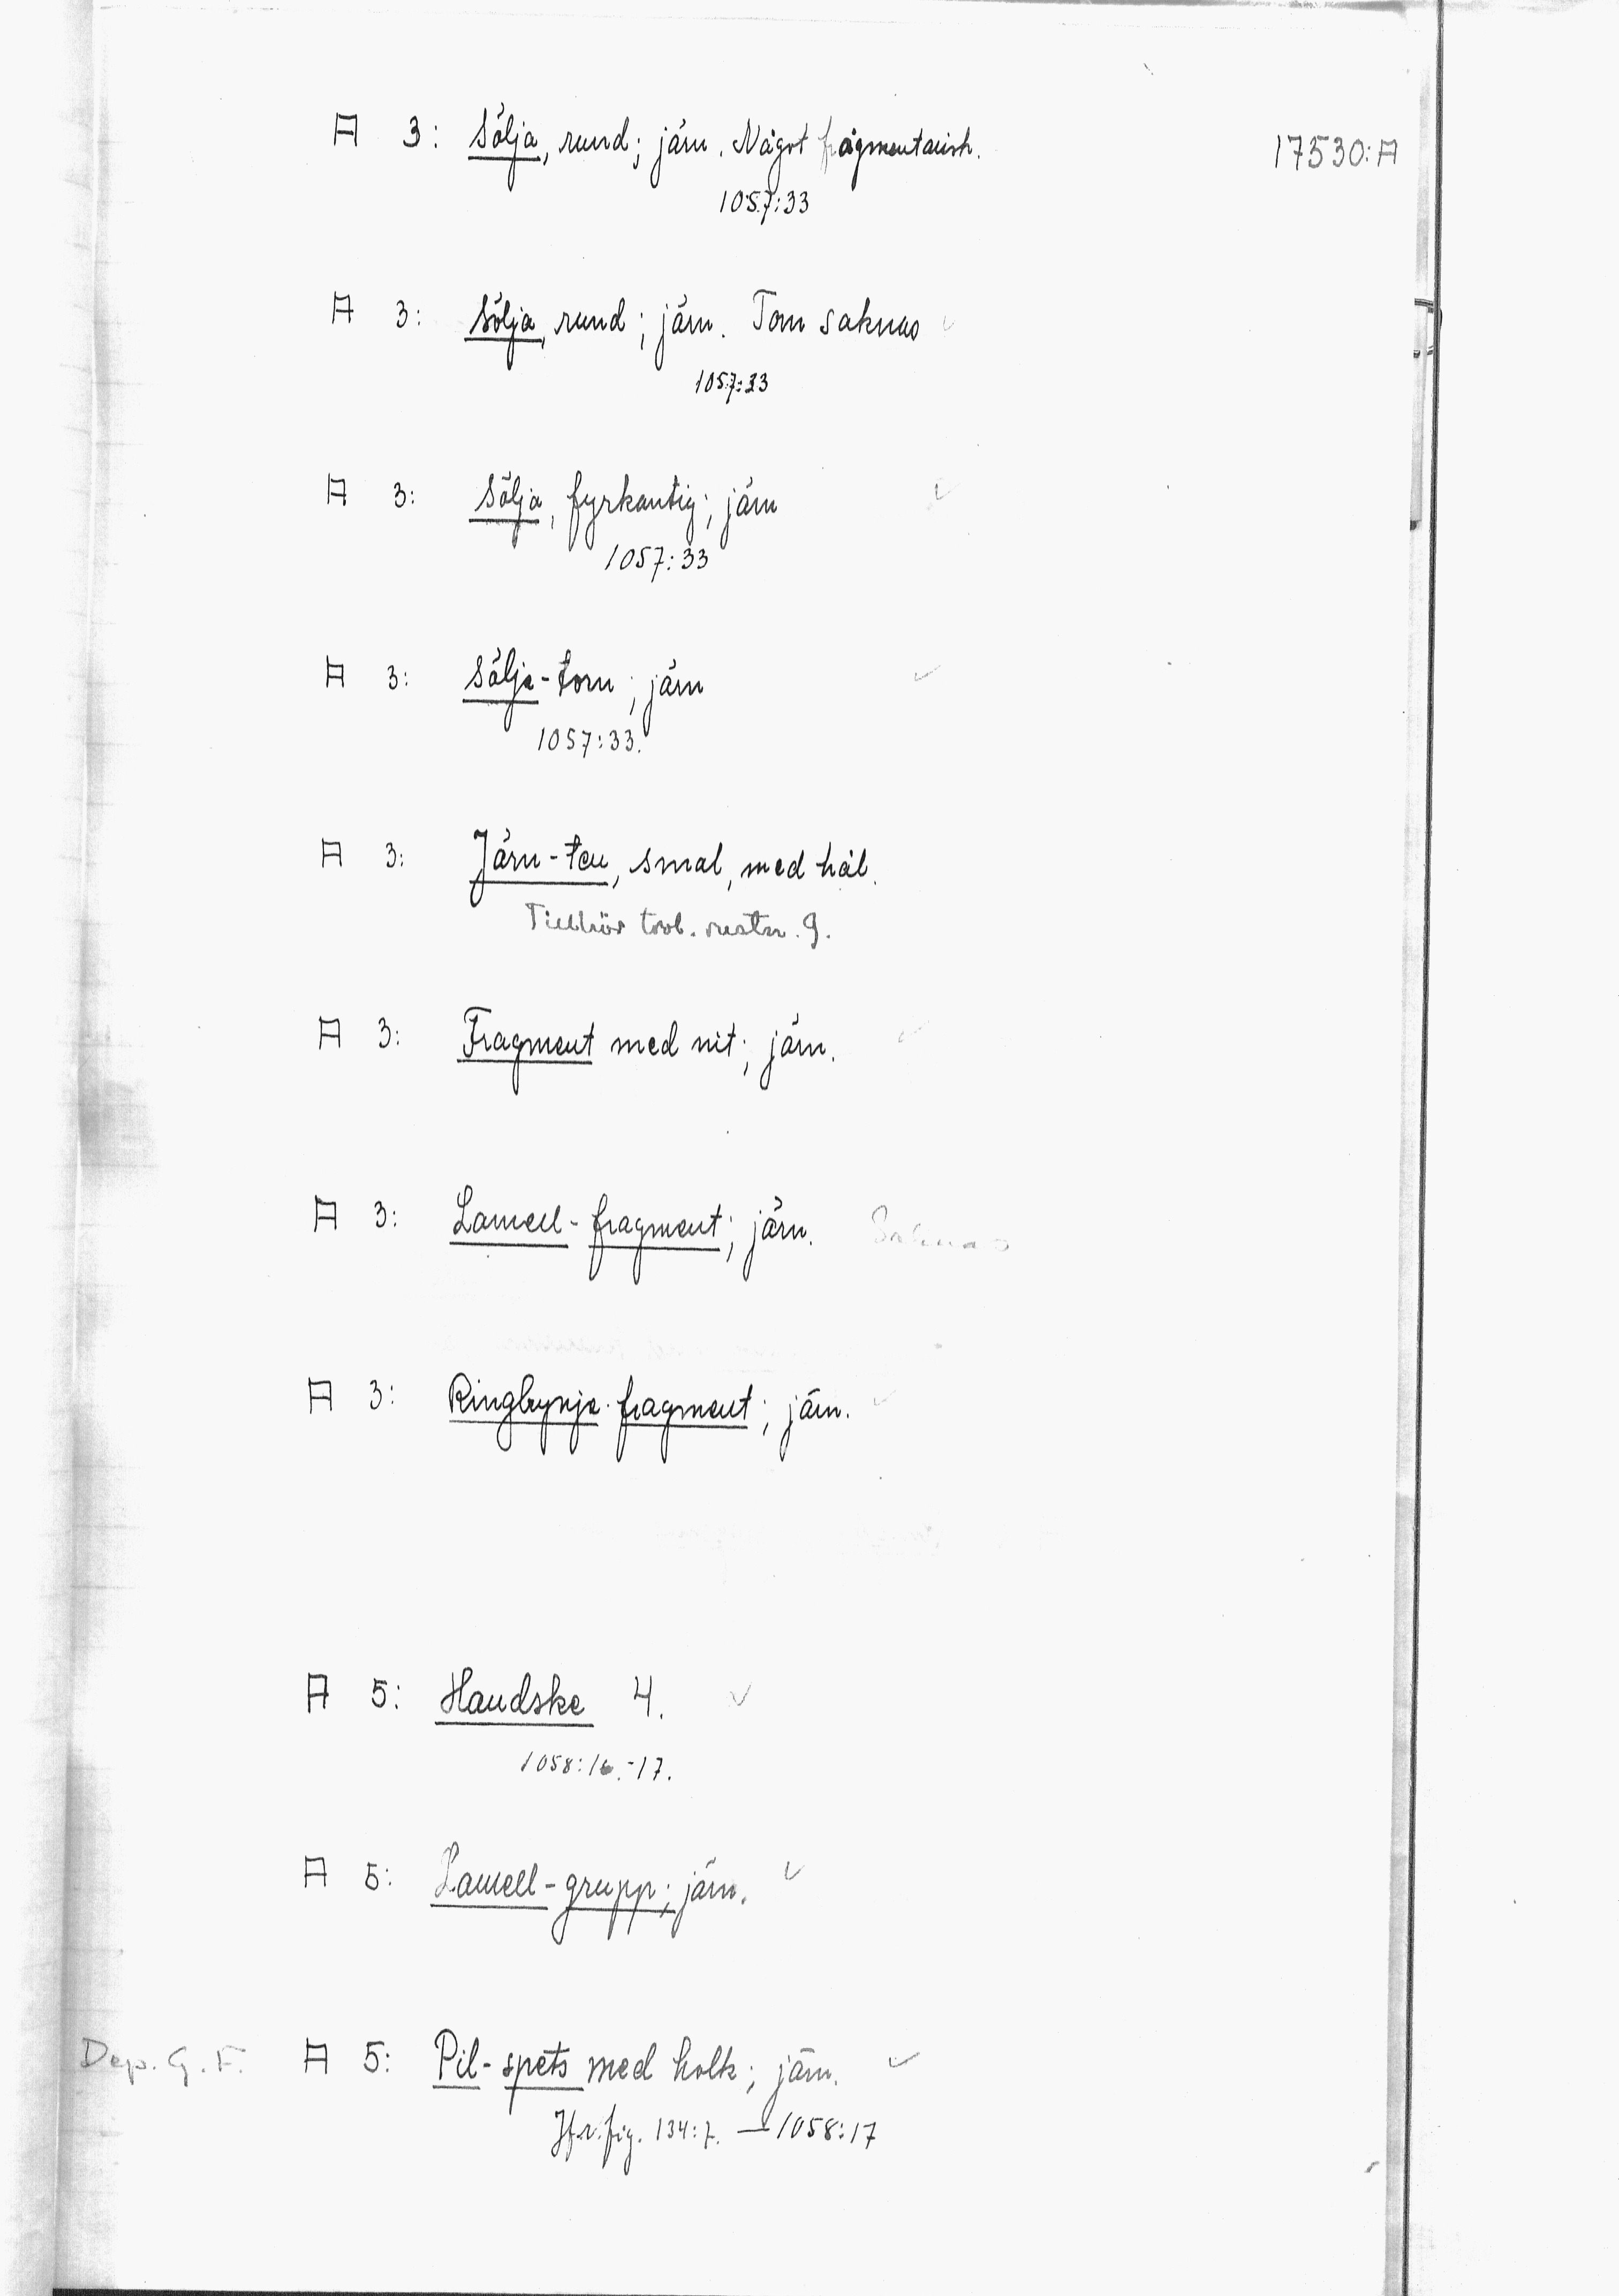 17530:A
A 3: Sölja, rund; järn. Något fragmentarisk.
1057:33
A 3: Sölja, rund; järn. Torn saknas
1057:33
A 3: Sölja, fyrkantig; järn
1057:33
A 3: Sölje-torn; järn
1057:33.
A 3: Järn-ten, smal, med hål.
Tillhör trol. rustn. 9.
A 3: Fragment med nit; järn.
A 3: Lamell-fragment; järn. Saknas
A 3: Ringbrynje-fragment; järn.
A 5: Handske 4.
1058:16.-17.
A 5: Lamell-grupp; järn.
Dep. G. F. A 5: Pil-spets med holk; järn.
Jfr. fig. 134:7. — 1058:17